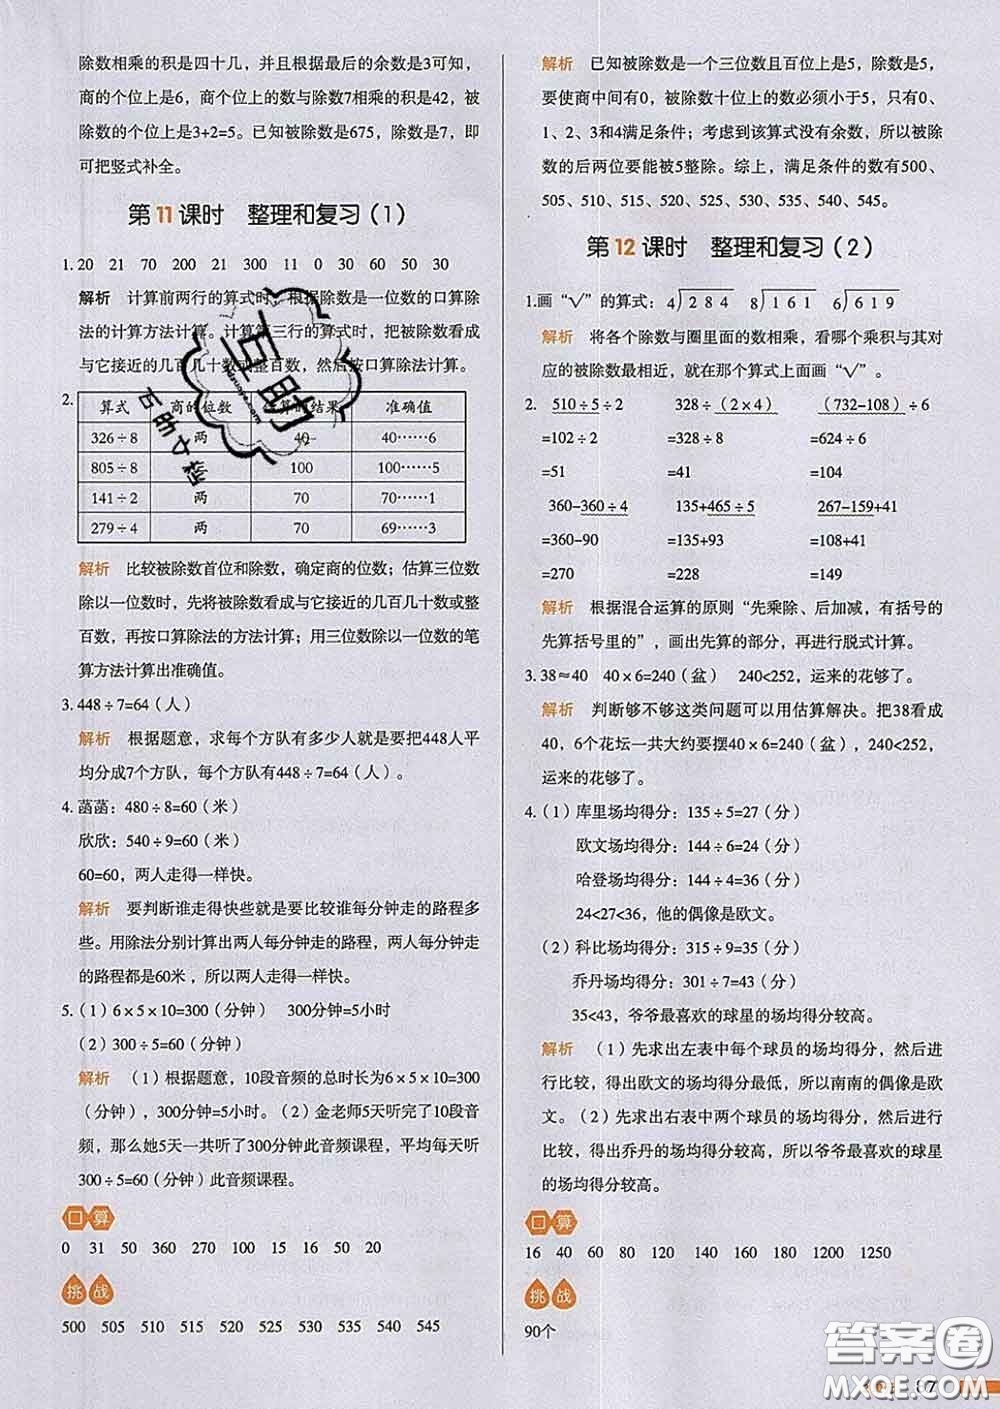 除数相乘的积是四十几，并且根据最后的余数是3可知，
商的个位上是6，商个位上的数与除数7相乘的积是42，被
除数的个位上是3+2=5。已知被除数是675，除数是7，即
可把竖式补全。
第11课时 整理和复习（1）
1. 20 21 70 200 21 300 11 0 30 60 50 30
解析 计算前两行的算式时，根据除数是一位数的口算除
法的计算方法计算。计算第三行的算式时，把被除数看成
与它接近的几百几十数或整百数，然后按口算除法计算。
2.
算式 商的位数 估算的结果 准确值
326÷8 两 40 40……6
805÷8 三 100 100……5
141÷2 两 70 70……1
279÷4 两 70 69……3
解析 比较被除数首位和除数，确定商的位数；估算三位数
除以一位数时，先将被除数看成与它接近的几百几十数或整
百数，再按口算除法的方法计算；用三位数除以一位数的笔
算方法计算出准确值。
3. 448÷7=64（人）
解析 根据题意，求每个方队有多少人就是要把448人平
均分成7个方队，每个方队有448÷7=64（人）。
4. 菡菡：480÷8=60（米）
欣欣：540÷9=60（米）
60=60，两人走得一样快。
解析 要判断谁走得快些就是要比较谁每分钟走的路程多
些。用除法分别计算出两人每分钟走的路程，两人每分钟走
的路程都是60米，所以两人走得一样快。
5.（1）6×5×10=300（分钟） 300分钟=5小时
（2）300÷5=60（分钟）
解析 （1）根据题意，10段音频的总时长为6×5×10=300
（分钟），300分钟=5小时。（2）金老师5天听完了10段音
频，那么她5天一共听了300分钟此音频课程，平均每天听
300÷5=60（分钟）此音频课程。
口算
0 31 50 360 270 100 15 16 50 20
挑战
500 505 510 515 520 525 530 535 540 545
解析 已知被除数是一个三位数且百位上是5，除数是5，
要使商中间有0，被除数十位上的数必须小于5，只有0、
1、2、3和4满足条件；考虑到该算式没有余数，所以被除
数的后两位要能被5整除。综上，满足条件的数有500、
505、510、515、520、525、530、535、540、545。
第12课时 整理和复习（2）
1.画“√”的算式：4)284 8)161 6)619
解析 将各个除数与圈里面的数相乘，看哪个乘积与其对
应的被除数最相近，就在那个算式上面画“√”。
2. 510÷5÷2 328÷（2×4） （732-108）÷6
=102÷2 =328÷8 =624÷6
=51 =41 =104
360-360÷4 135+465÷5 267-159+41
=360-90 =135+93 =108+41
=270 =228 =149
解析 根据混合运算的原则“先乘除、后加减，有括号的
先算括号里的”，画出先算的部分，再进行脱式计算。
3. 38≈40 40×6=240（盆） 240<252，运来的花够了。
解析 判断够不够这类问题可以用估算解决。把38看成
40，6个花坛一共大约要摆40×6=240（盆），240<252，
运来的花够了。
4.（1）库里场均得分：135÷5=27（分）
欧文场均得分：144÷6=24（分）
哈登场均得分：144÷4=36（分）
24<27<36，他的偶像是欧文。
（2）科比场均得分：315÷9=35（分）
乔丹场均得分：301÷7=43（分）
35<43，爷爷最喜欢的球星的场均得分较高。
解析 （1）先求出左表中每个球员的场均得分，然后进
行比较，得出欧文的场均得分最低，所以南南的偶像是欧
文。（2）先求出右表中两个球员的场均得分，然后进行
比较，得出乔丹的场均得分较高，所以爷爷最喜欢的球星
的场均得分较高。
口算
16 40 60 80 120 130 140 180 1200 1250
挑战
90个
87
互助
答案圈
MXQE.COM